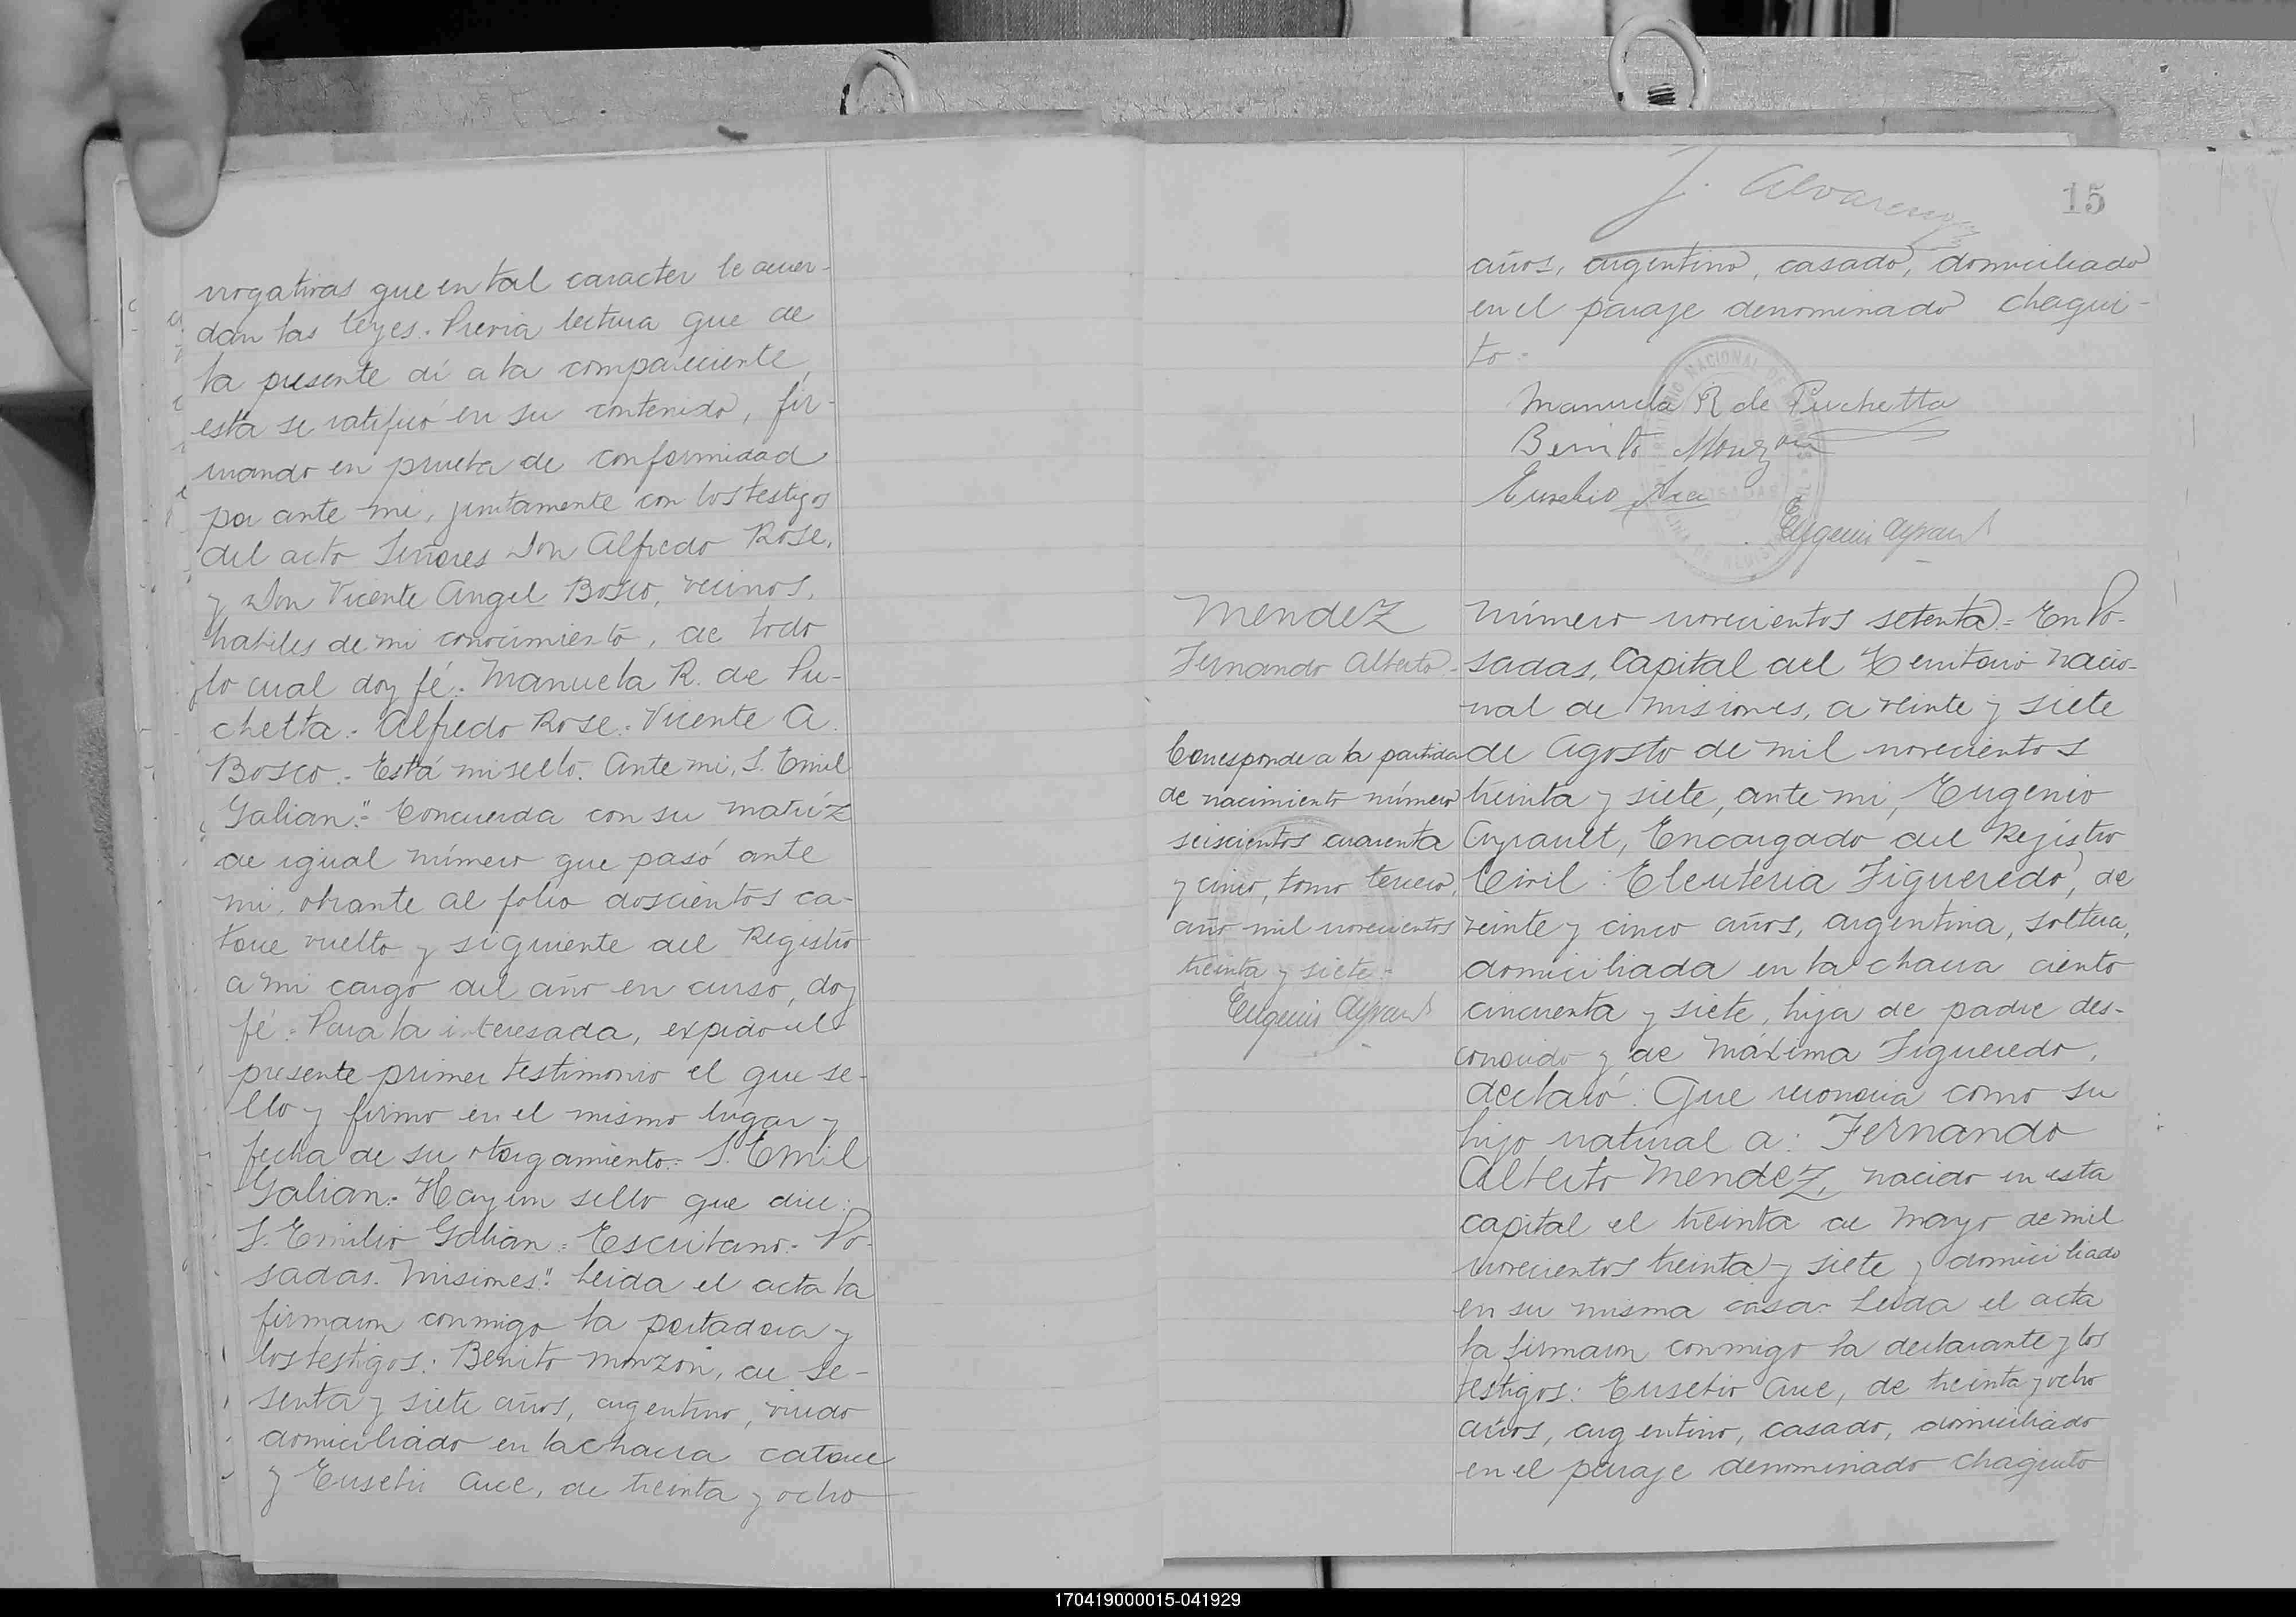 rrogativas que en tal caracter le acuer-
dan las leyes. Previa lectura que de
la presente dí a la compareciente,
esta se ratificó en su contenido, fir-
mando en prueba de conformidad
por ante mi, juntamente con los testigos
del acto Señores Don Alfredo Rose,
y Don Vicente Angel Bosco, vecinos,
habiles de mi conocimiento, de todo
lo cual doy fé. Manuela R. de Pu-
chetta.- Alfredo Rose.- Vicente A.
Bosco.- Está mi sello. Ante mi, S. Emil
Galian."- Concuerda con su matríz
de igual número que pasó ante
mi, obrante al folio doscientos ca-
torce vuelto y siguiente del Registro
a mi cargo del año en curso, doy
fé.- Para la interesada, expido el
presente primer testimonio el que se-
llo y firmo en el mismo lugar y
fecha de su otorgamiento.- S. Emil
Galian.- Hay un sello que dice:
S. Emilio Galian.- Escribano.- Po-
sadas. Misiones". Leida el acta la
firmaron conmigo la portadora y
los testigos: Benito Monzón, de se-
senta y siete años, argentino, viudo
domiciliado en la chacra catorce
y Eusebio Arce, de treinta y ocho
J. Alvarenga
15
años, argentino, casado, domiciliado
en el paraje denominado Chaqui-
to.-
Manuela R de Puchetta
Benito Monzon
Eusebio Arce
Eugenio Ayrault
Mendez
Fernando Alberto
Corresponde a la partida
de nacimiento número
seiscientos cuarenta
y cinco, tomo tercero,
año mil novecientos
treinta y siete.-
Eugenio Ayrault
Número novecientos setenta.= En Po-
sadas, Capital del Territorio Nacio-
nal de Misiones, a veinte y siete
de Agosto de mil novecientos
treinta y siete, ante mi, Eugenio
Ayrault, Encargado del Registro
Civil: Eleutéria Figueredo, de
veinte y cinco años, argentina, soltera,
domiciliada en la chacra ciento
cincuenta y siete, hija de padre des-
conocido y de Máxima Figueredo,
declaró: Que reconocia como su
hijo natural a: Fernando
Alberto Mendez, nacido en esta
capital el treinta de Mayo de mil
novecientos treinta y siete y domiciliado
en su misma casa.- Leida el acta
la firmaron conmigo la declarante y los
testigos: Eusebio Arce, de treinta y ocho
años, argentino, casado, domiciliado
en el paraje denominado Chaquito
170419000015-041929